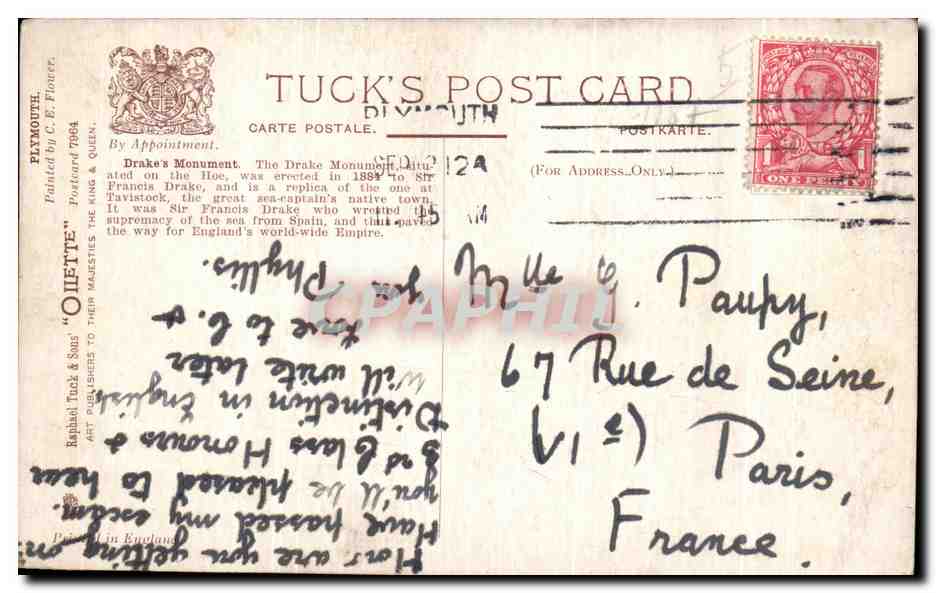 PLYMOUTH.
Painted by C. E. Flower.
Raphael Tuck & Sons' "OILETTE" Postcard 7964
ART PUBLISHERS TO THEIR MAJESTIES THE KING & QUEEN.
By Appointment.
TUCK'S POST CARD
CARTE POSTALE. POSTKARTE.
(FOR ADDRESS ONLY.)
PLYMOUTH
12
ONE PENNY
Drake's Monument. The Drake Monument, situ-
ated on the Hoe, was erected in 1884 to Sir
Francis Drake, and is a replica of the one at
Tavistock, the great sea-captain's native town.
It was Sir Francis Drake who wrested the
supremacy of the sea from Spain, and thus paved
the way for England's world-wide Empire.
Printed in England
How are you getting on.
Have passed my exam.
you'll be pleased to hear
3rd Class Honours &
Distinction in English.
Will write later
love to G. &
you Phyllis.
Mlle G. Paupy,
67 Rue de Seine,
(VIe)
Paris,
France.
CPAPHIL